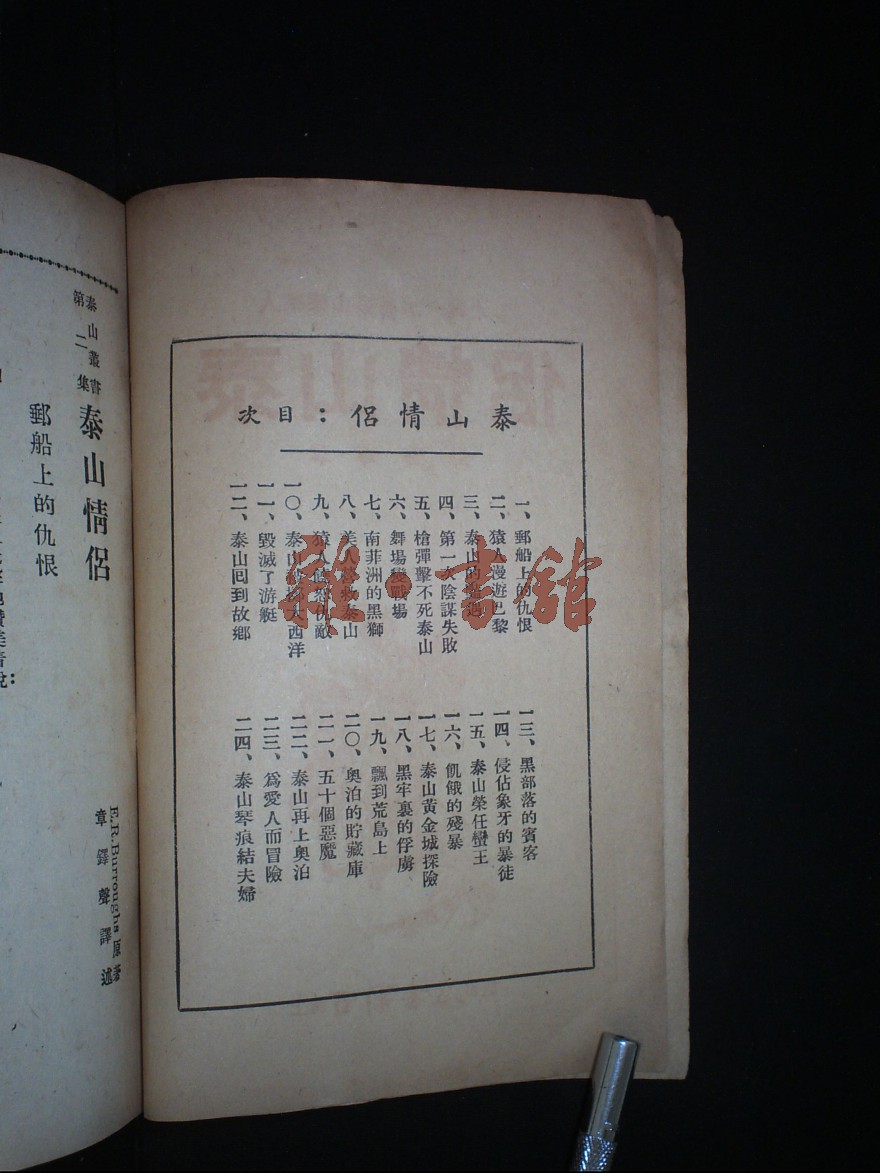 泰山情侶：目次
一、郵船上的仇恨
二、猿人漫遊巴黎
三、泰山的
四、第一次陰謀失敗
五、槍彈擊不死泰山
六、舞場變戰場
七、南菲洲的黑獅
八、美人營救泰山
九、猿人
一〇、泰山 大西洋
一一、毀滅了游艇
一二、泰山囘到故鄉
一三、黑部落的賓客
一四、侵佔象牙的暴徒
一五、泰山榮任蠻王
一六、飢餓的殘暴
一七、泰山黃金城探險
一八、黑牢裏的俘虜
一九、飄到荒島上
二〇、奧泊的貯藏庫
二一、五十個惡魔
二二、泰山再上奧泊
二三、爲愛人而冒險
二四、泰山琴痕結夫婦
雜·書館
泰山叢書
第二集
泰山情侶
E.R.Burroughs 原著
章鐸聲譯述
郵船上的仇恨